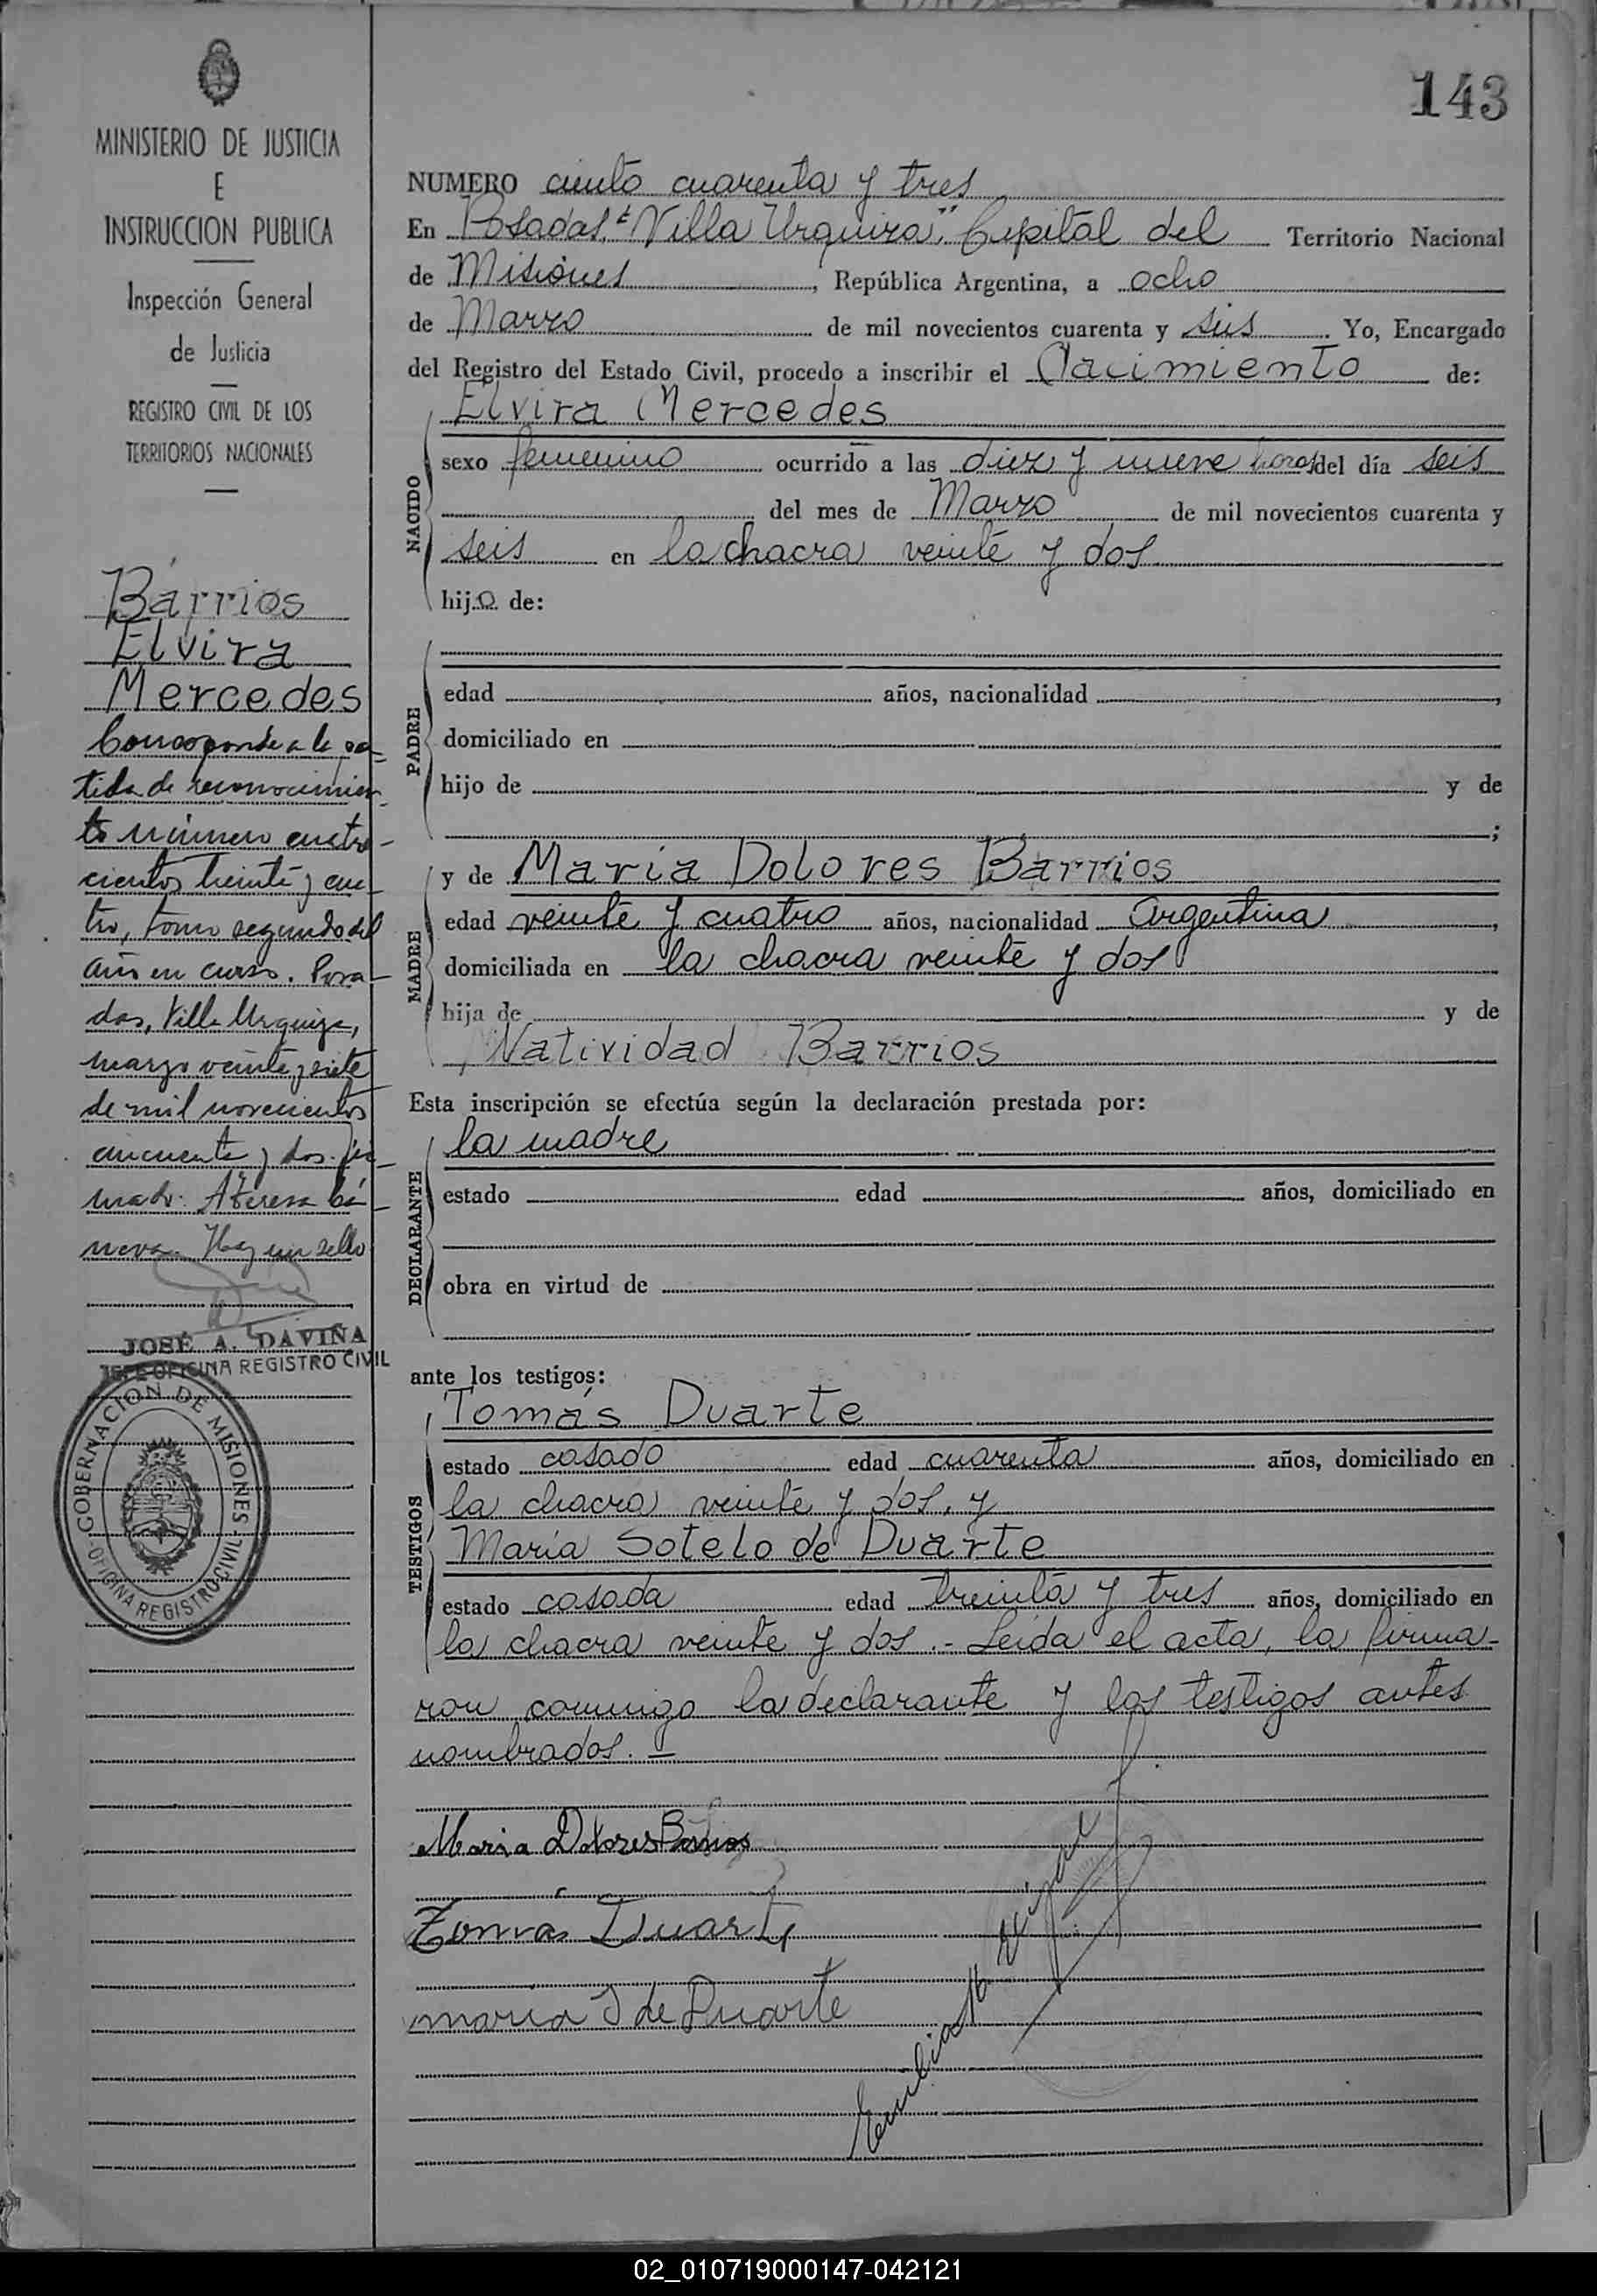 143
MINISTERIO DE JUSTICIA
E
INSTRUCCION PUBLICA
Inspección General
de Justicia
REGISTRO CIVIL DE LOS
TERRITORIOS NACIONALES
Barrios
Elvira
Mercedes
Corresponde a la par-
tida de reconocimien-
to número cuatro-
cientos treinta y cua-
tro, tomo segundo del
año en curso. Posa-
das, Villa Urquiza,
marzo veinte y siete
de mil novecientos
cincuenta y dos. Fir-
mado: A Teresa Cá-
neva. Hay un sello
JOSÉ A. DAVIÑA
JEFE OFICINA REGISTRO CIVIL
GOBERNACION DE MISIONES
OFICINA REGISTRO CIVIL
NUMERO ciento cuarenta y tres
En Posadas, "Villa Urquiza", Capital del Territorio Nacional
de Misiones, República Argentina, a ocho
de Marzo de mil novecientos cuarenta y seis. Yo, Encargado
del Registro del Estado Civil, procedo a inscribir el Nacimiento de:
NACIDO
Elvira Mercedes
sexo femenino ocurrido a las diez y nueve horas del día seis
del mes de Marzo de mil novecientos cuarenta y
seis en la chacra veinte y dos
hija de:
PADRE
edad años, nacionalidad ,
domiciliado en
hijo de y de
;
MADRE
y de María Dolores Barrios
edad veinte y cuatro años, nacionalidad Argentina,
domiciliada en la chacra veinte y dos
hija de y de
Natividad Barrios
Esta inscripción se efectúa según la declaración prestada por:
DECLARANTE
la madre
estado edad años, domiciliado en
obra en virtud de
ante los testigos:
TESTIGOS
Tomás Duarte
estado casado edad cuarenta años, domiciliado en
la chacra veinte y dos, y
María Sotelo de Duarte
estado casada edad treinta y tres años, domiciliado en
la chacra veinte y dos.- Leída el acta, la firma-
ron conmigo la declarante y los testigos antes
nombrados.-
Maria Dolores Barrios
Tomás Duarte
maria S de Duarte
02_010719000147-042121